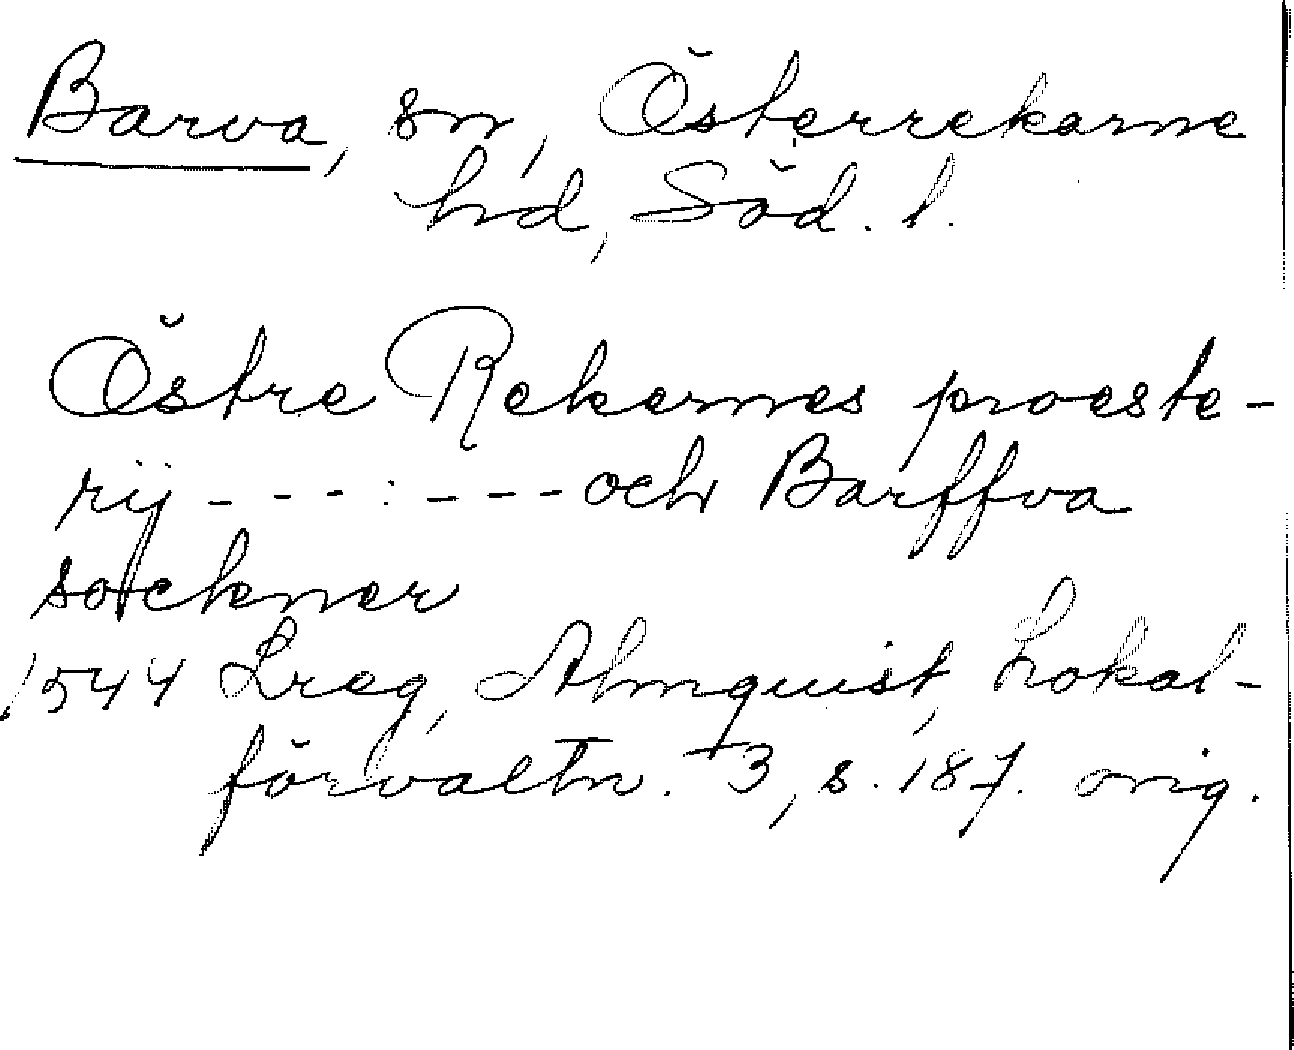 Barva, sn, Österrekarne
hd, Söd. l.
Östre Rekarnes proeste-
rij - - - : - - - och Barffva
sockner
1544 Lreg, Almquist, Lokal-
förvaltn. 3, s. 187. orig.